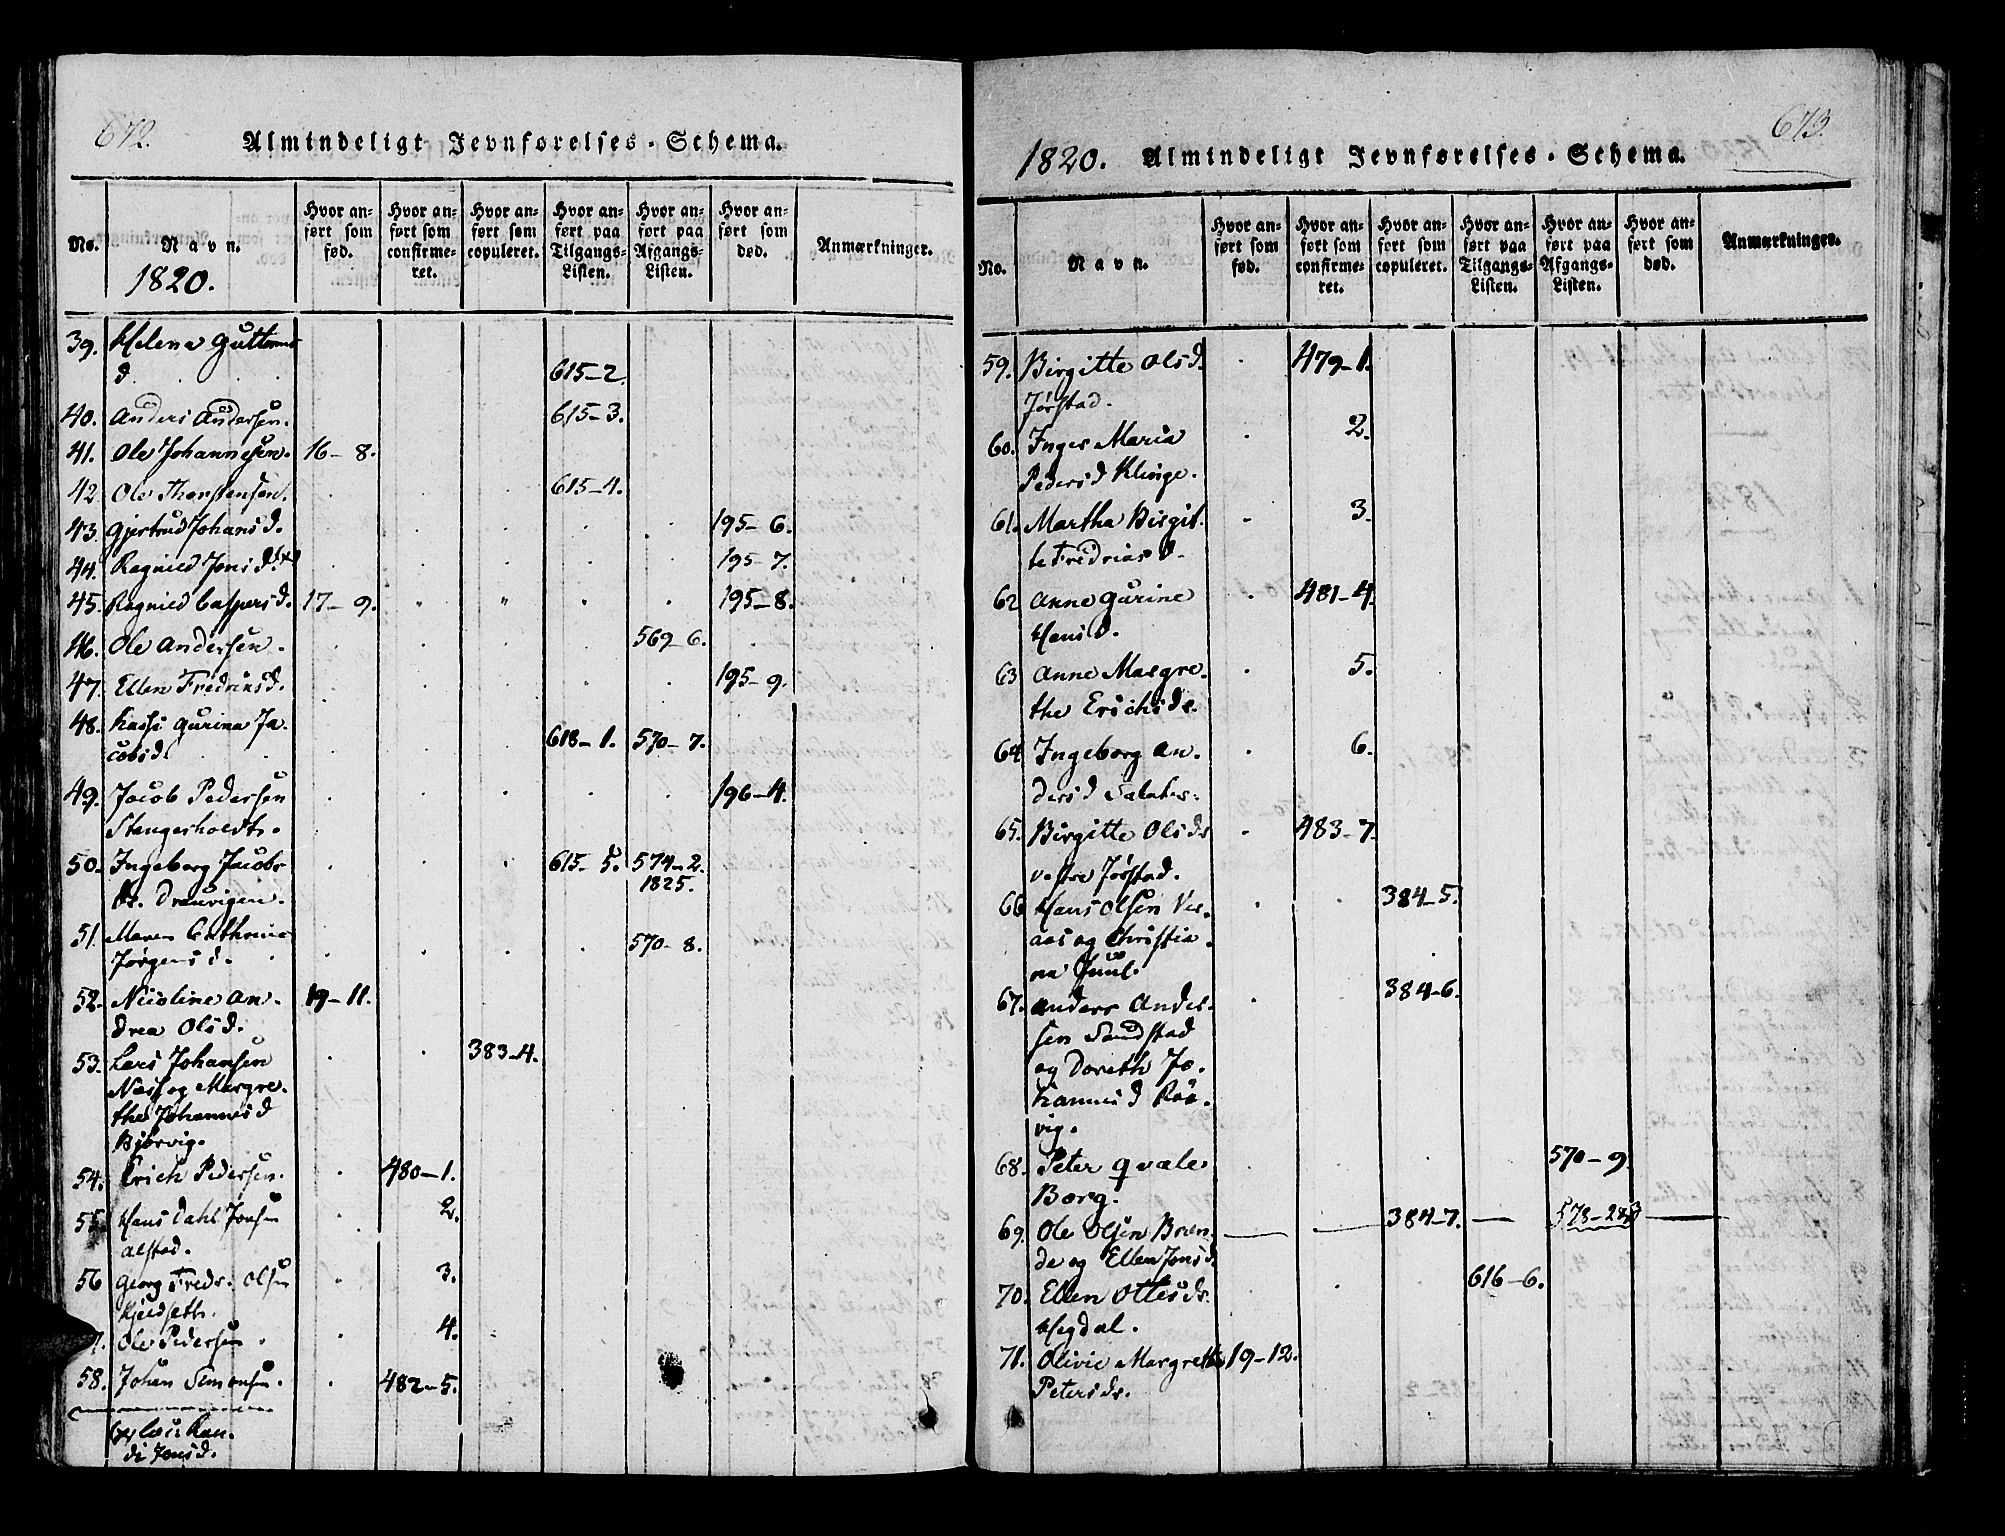 672.
Almindeligt Jevnførelses-Schema.
No. Navn. Hvor anført som fød. Hvor anført som confirmeret. Hvor anført som copuleret. Hvor anført paa Tilgangs-Listen. Hvor anført paa Afgangs-Listen. Hvor anført som død. Anmærkninger.
1820.
39. Helena Guttorms
d. 615-2.
40. Anders Andersen. 615-3.
41. Ole Johannesen. 16-8.
42 Ole Thorstensen. 615-4.
43. Gjertrud Johansd. 195-6.
44. Ragnild Jonsd. 195-7.
45. Ragnild Caspersd. 17-9. 195-8.
46. Ole Andersen. 569-6.
47. Ellen Fredriksd. 195-9.
48. Gurina Ja-
cobsd. 618-1. 570-7.
49. Jacob Pedersen 196-4.
Stengesholdt.
50. Ingeborg Jacobs 615-5. 574-2.
1825.
51. Maren Cathrina
Jørgensd. 570-8.
52. Nicoline An- 19-11.
drea Olsd.
53. Lars Johansen 383-4.
Næss og Margre-
the Johannesd
Bjørvig.
54. Erich Pedersen. 480-1.
55 Hans Dahl Jonsen 2.
alstad.
56 Georg Fredr. Olsen 3.
7. Ole Pedersen. 4.
58. Johan Simonsen. 482-5.
di Jonsd.
673.
1820. Almindeligt Jevnførelses-Schema.
No. Navn. Hvor anført som fød. Hvor anført som confirmeret. Hvor anført som copuleret. Hvor anført paa Tilgangs-Listen. Hvor anført paa Afgangs-Listen. Hvor anført som død. Anmærkninger.
59. Birgitte Olsd. 479-1.
Jørstad.
60. Inger Maria 2.
Pedersd Klinge.
61. Martha Birgit- 3.
te Fredriksd.
62 Anne Gurine 481-4.
Hansd.
63 Anne Margre- 5.
the Erichsd.
64 Ingeborg An- 6.
dersd
65. Birgitte Olsdr 483-7.
vestre Jørstad.
66 Hans Olsen Ver- 384-5.
aas og Christia-
na Juul.
67. Anders Ander- 384-6.
sen Sandstad
og Doreth Jo-
hannesd Røs-
vig.
68. Peter Qvale 570-9.
Borg.
69. Ole Olsen Bren- 384-7.
de og Ellen Jonsd.
70. Ellen Ottesdr. 616-6.
Hegdal.
71. Olivie Margrethe 19-12.
Petersdr.